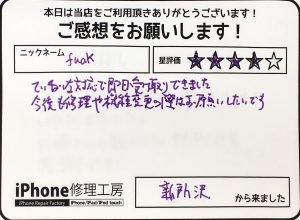 本日は当店をご利用頂きありがとうございます!
ご感想をお願いします!
ニックネーム fuak
星評価 ★★★★☆
ていねいな対応で即日受取りできました
今後も修理や機種変更の際はお願いしたいです
iPhone修理工房
iPhone Repair Factory iPhone/iPad/iPod touch
新所沢 から来ました